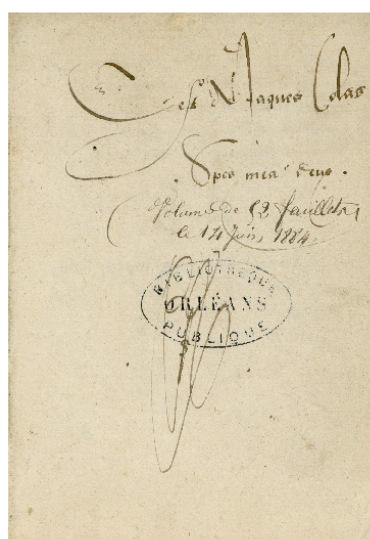 C'est à Jaques Colas
Spes mea deus.
Volume de 12 feuillets
le 14 Juin 1884
BIBLIOTHEQUE
ORLÉANS
PUBLIQUE